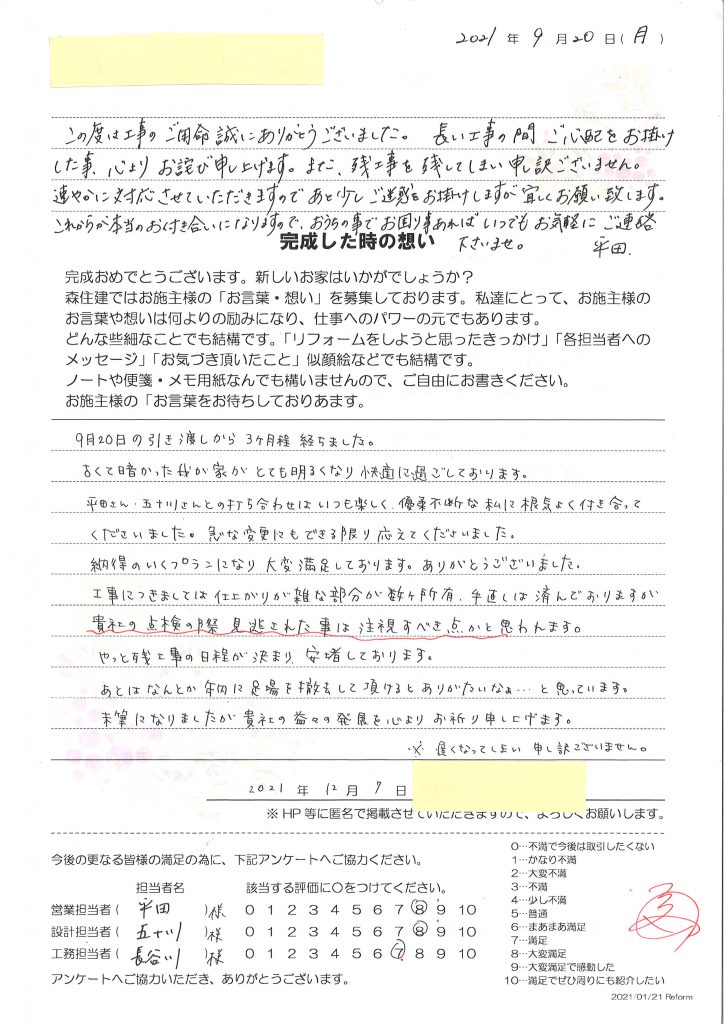 2021 年 9 月 20 日 ( 月 )
この度は工事のご用命誠にありがとうございました。 長い工事の間 ご心配をお掛け
した事、心より お詫び申し上げます。また、残工事を残してしまい申し訳ございません。
速やかに対応させていただきますので あと少しご迷惑をお掛けしますが宜しくお願い致します。
これからが本当のお付き合いになりますので、おうちの事でお困り事あれば いつでも お気軽に ご連絡
下さいませ。
平田.
完成した時の想い
完成おめでとうございます。新しいお家はいかがでしょうか？
森住建ではお施主様の「お言葉・想い」を募集しております。私達にとって、お施主様の
お言葉や想いは何よりの励みになり、仕事へのパワーの元でもあります。
どんな些細なことでも結構です。「リフォームをしようと思ったきっかけ」「各担当者への
メッセージ」「お気づき頂いたこと」似顔絵などでも結構です。
ノートや便箋・メモ用紙なんでも構いませんので、ご自由にお書きください。
お施主様の「お言葉をお待ちしておりあます。
9月20日の引き渡しから 3ヶ月程 経ちました。
古くて暗かった我が家が とても明るくなり 快適に過ごしております。
平田さん・五十川さんとの打ち合わせは いつも楽しく、優柔不断な私に根気よく付き合って
くださいました。急な変更にもできる限り応えてくださいました。
納得のいくプランになり 大変満足しております。ありがとうございました。
工事につきましては 仕上がりが雑な部分が数ヶ所有、手直しは済んでおりますが
貴社の点検の際 見逃された事は 注視すべき点かと思われます。
やっと残工事の日程が決まり、安堵しております。
あとはなんとか年内に足場を撤去して頂けるとありがたいなぁ…と思っています。
末筆になりましたが貴社の益々の発展を心よりお祈り申し上げます。
※ 遅くなってしまい 申し訳ございません。
2021 年 12 月 7 日
※HP 等に匿名で掲載させていただきますので、よろしくお願いします。
今後の更なる皆様の満足の為に、下記アンケートへご協力ください。
担当者名 該当する評価に○をつけてください。
営業担当者( 平田 )様 0 1 2 3 4 5 6 7 8 9 10
設計担当者( 五十川 )様 0 1 2 3 4 5 6 7 8 9 10
工務担当者( 長谷川 )様 0 1 2 3 4 5 6 7 8 9 10
アンケートへご協力いただき、ありがとうございます。
0…不満で今後は取引したくない
1…かなり不満
2…大変不満
3…不満
4…少し不満
5…普通
6…まあまあ満足
7…満足
8…大変満足
9…大変満足で感動した
10…満足でぜひ周りにも紹介したい
2021/01/21 Reform